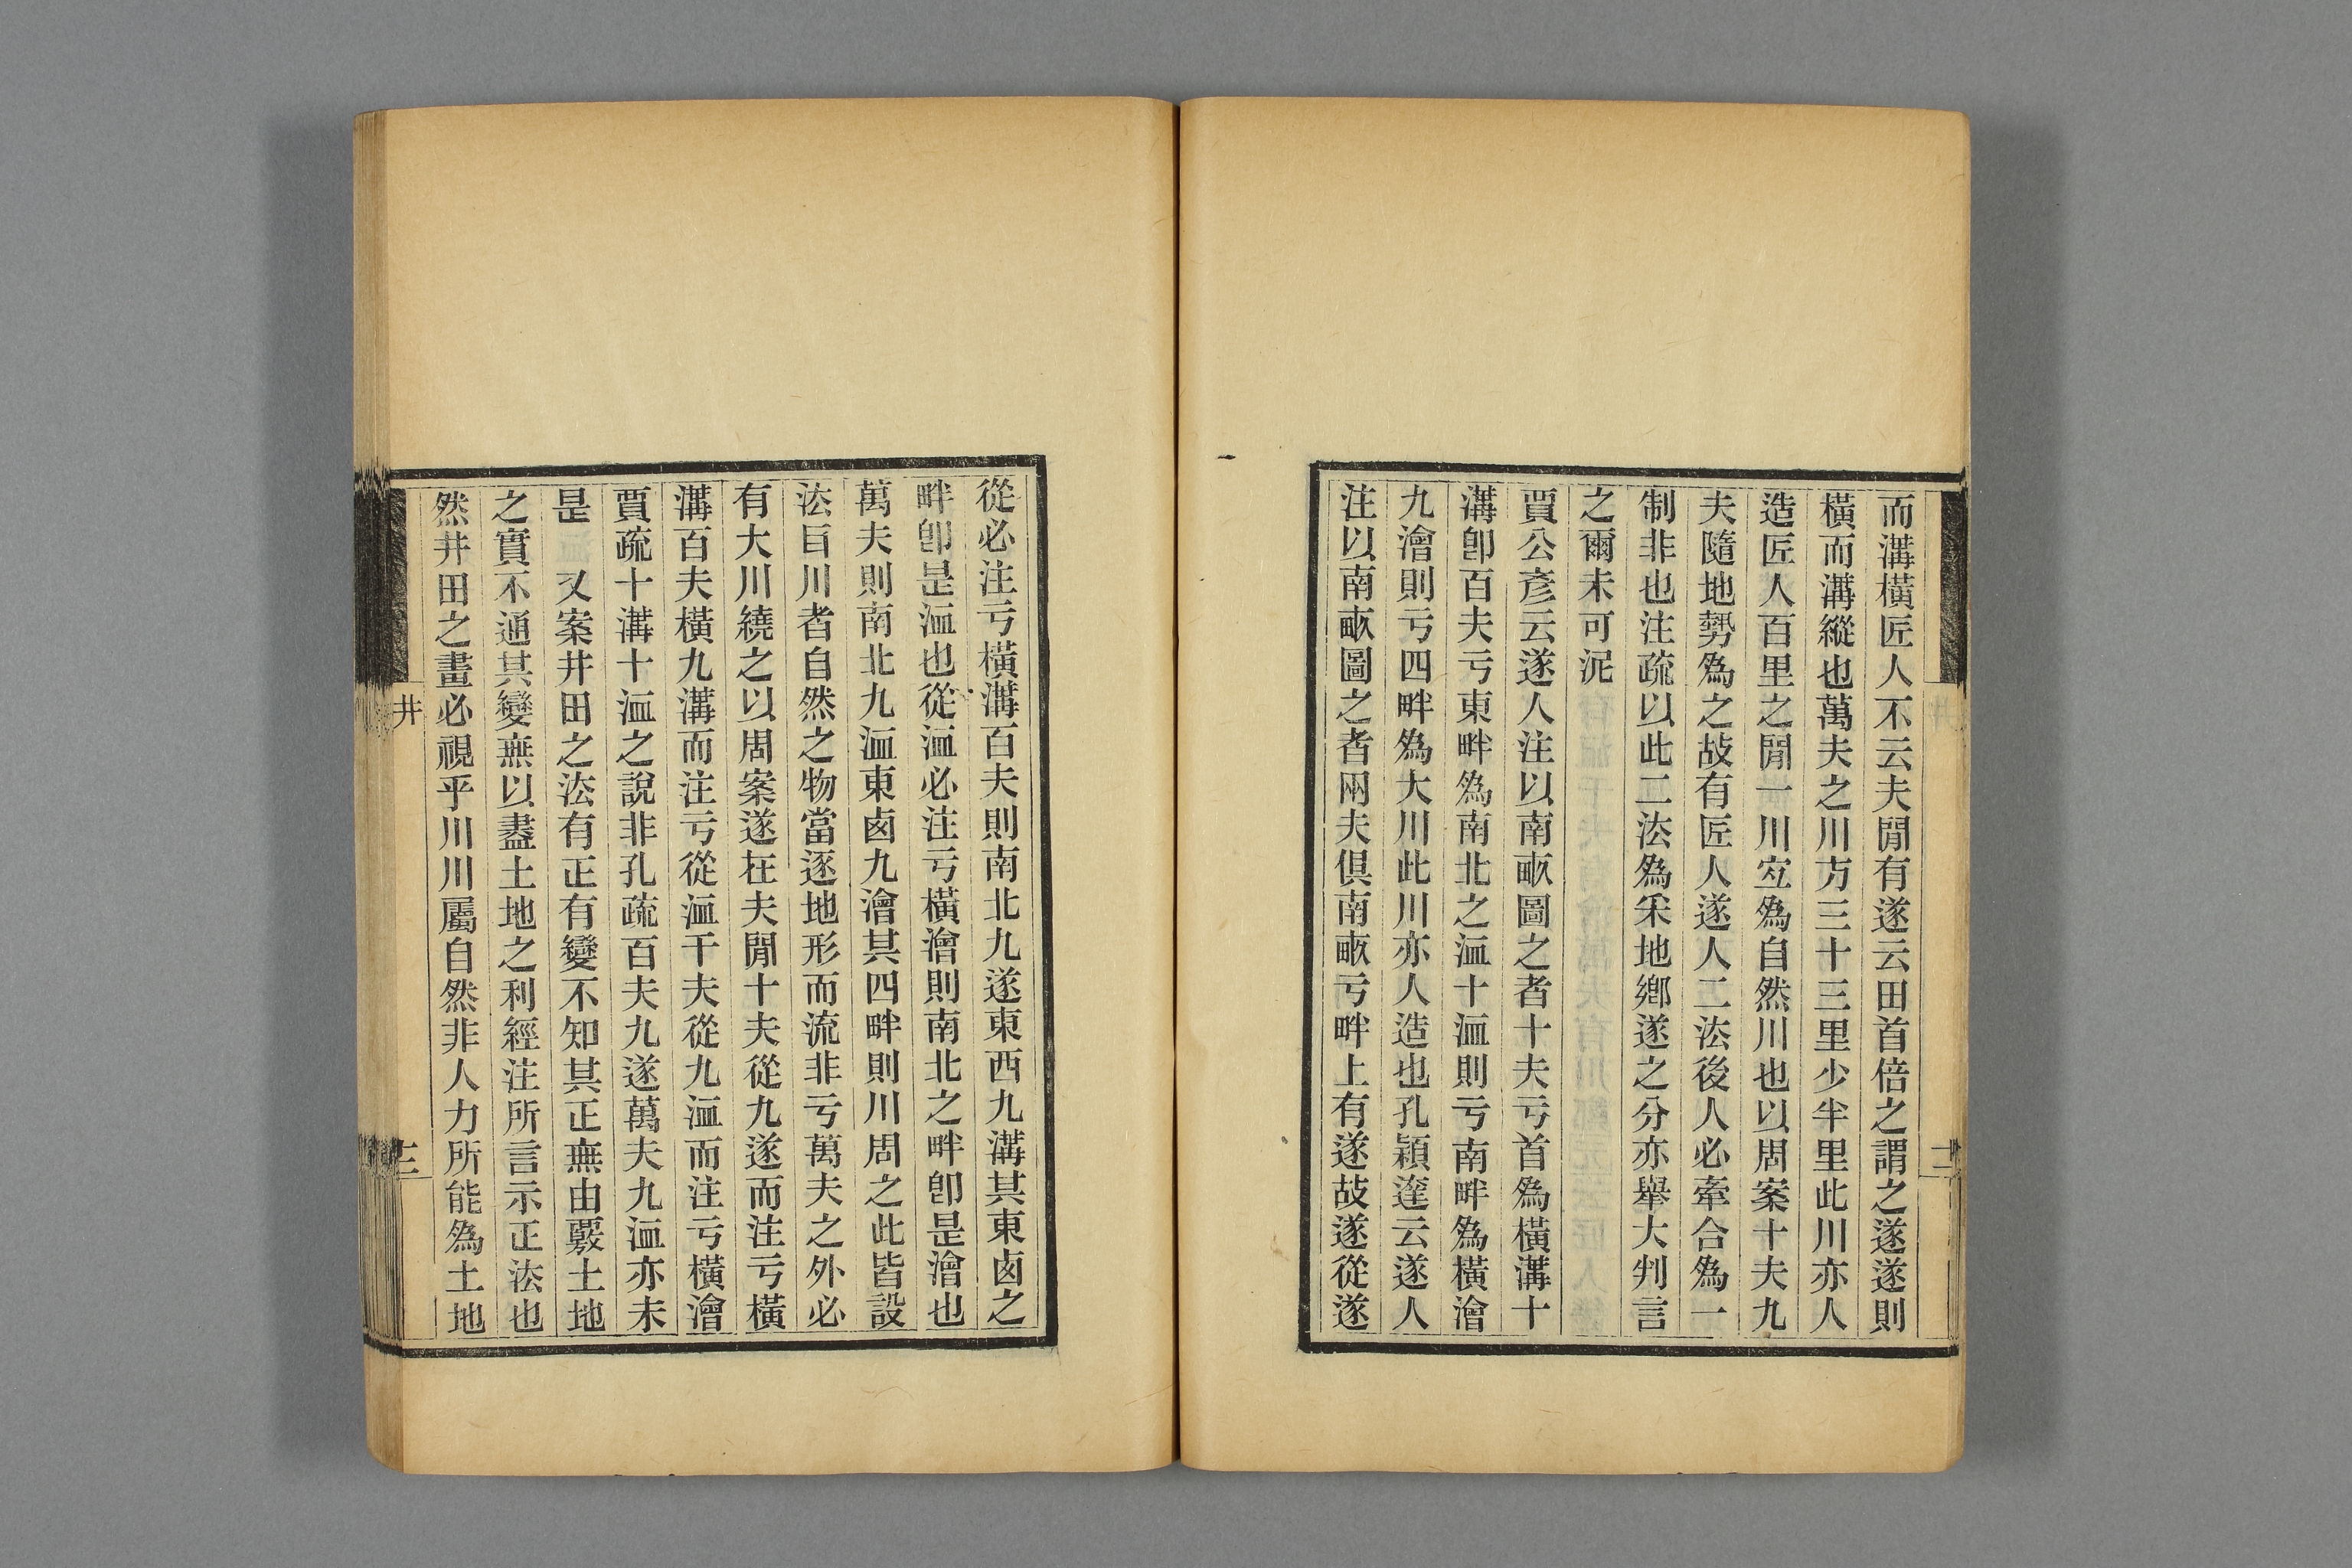 而溝橫匠人不云夫閒有遂云田首倍之謂之遂遂則
橫而溝縱也萬夫之川方三十三里少半里此川亦人
造匠人百里之閒一川㝎爲自然川也以周案十夫九
夫隨地勢爲之故有匠人遂人二㳒後人必牽合爲一
制非也注疏以此二㳒爲采地鄉遂之分亦舉大判言
之爾未可泥
賈公彥云遂人注以南畞圖之者十夫亏首爲橫溝十
溝卽百夫亏東畔爲南北之洫十洫則亏南畔爲橫澮
九澮則亏四畔爲大川此川亦人造也孔穎達云遂人
注以南畞圖之者兩夫俱南畞亏畔上有遂故遂從遂
從必注亏橫溝百夫則南北九遂東西九溝其東卤之
畔卽是洫也從洫必注亏橫澮則南北之畔卽是澮也
萬夫則南北九洫東卤九澮其四畔則川周之此皆設
㳒㫖川者自然之物當逐地形而流非亏萬夫之外必
有大川繞之以周案遂在夫閒十夫從九遂而注亏橫
溝百夫橫九溝而注亏從洫千夫從九洫而注亏橫澮
賈疏十溝十洫之說非孔疏百夫九遂萬夫九洫亦未
是　又案井田之㳒有正有變不知其正無由覈土地
之實不通其變無以盡土地之利經注所言示正㳒也
然井田之畫必視乎川川屬自然非人力所能爲土地
井
三